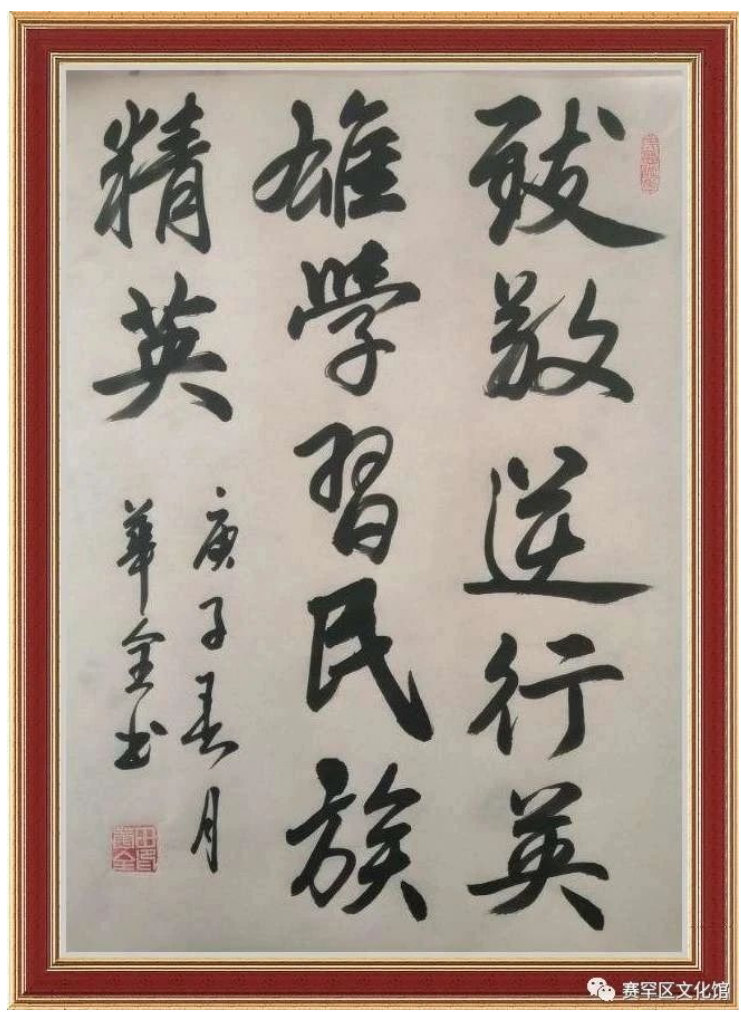 致敬逆行英
雄學習民族
精英
庚子春月
華全书
赛罕区文化馆